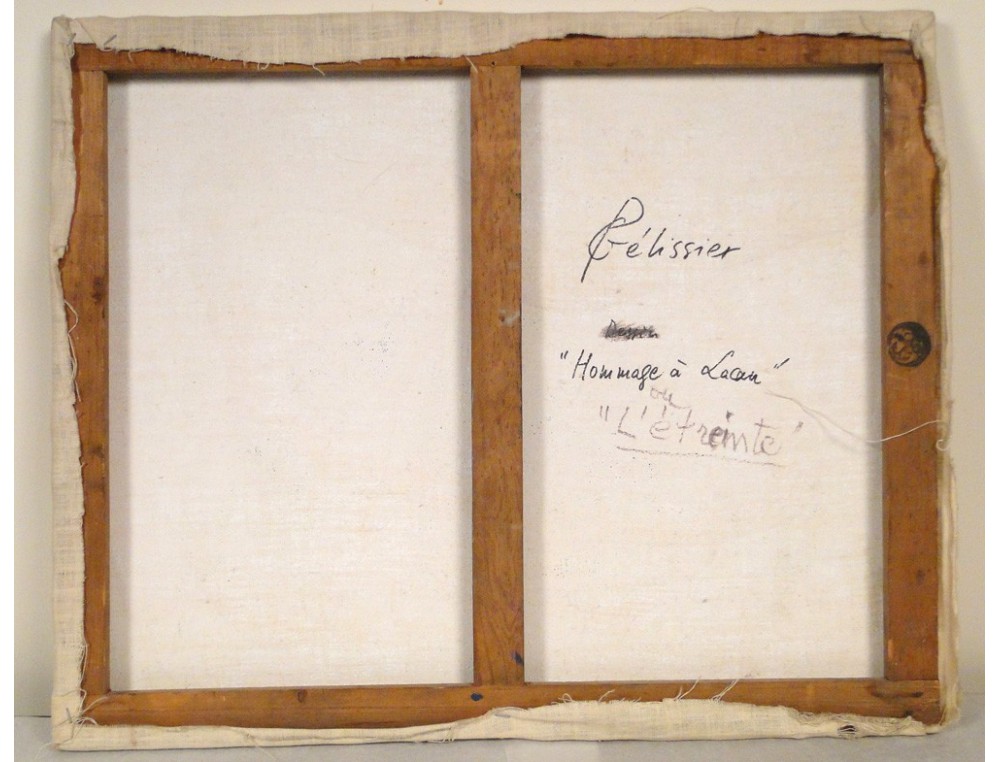 Pélissier
"Hommage à Lacan"
ou
"L'étreinte"